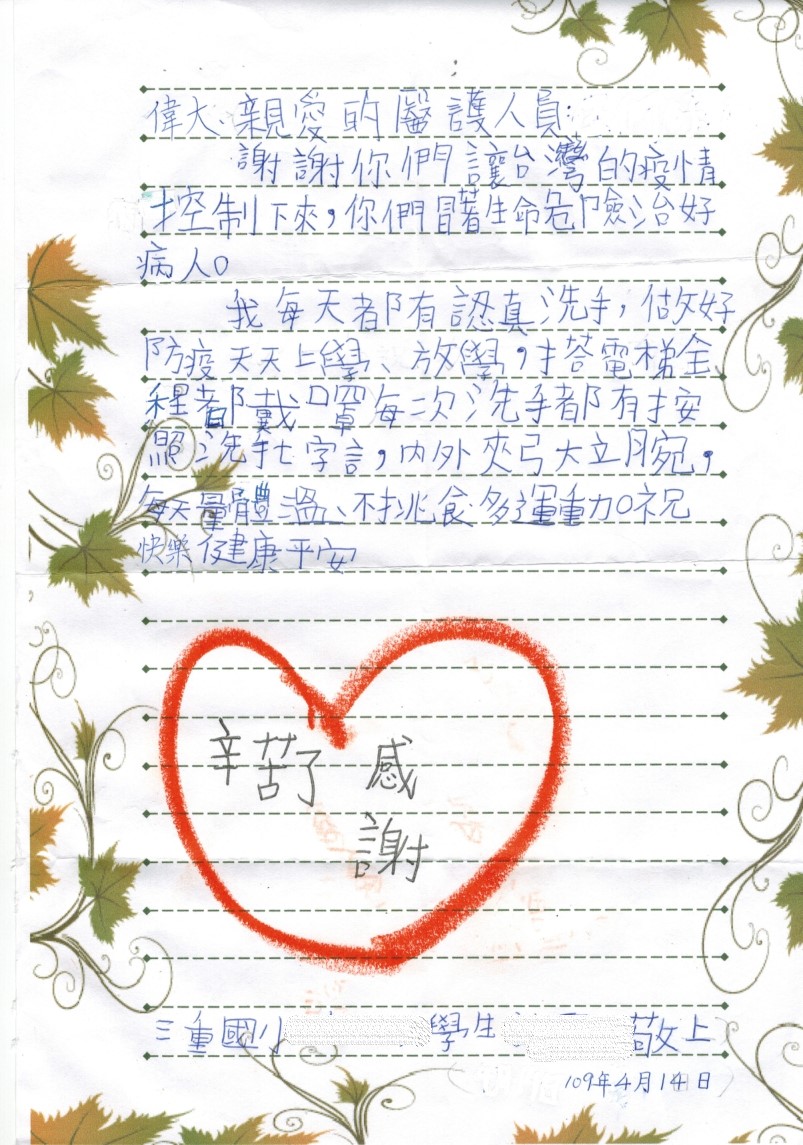 偉大、親愛的醫護人員:
謝謝你們讓台灣的疫情
控制下來,你們冒著生命危險治好
病人。
我每天都有認真洗手,做好
防疫天天上學、放學,搭電梯全
程都戴口罩每次洗手都有按
照洗手七字言,內外夾弓大立腕,
每天量體溫、不挑食多運動。祝
快樂健康平安
辛苦了 感
謝
三重國小
學生
敬上
109年4月14日